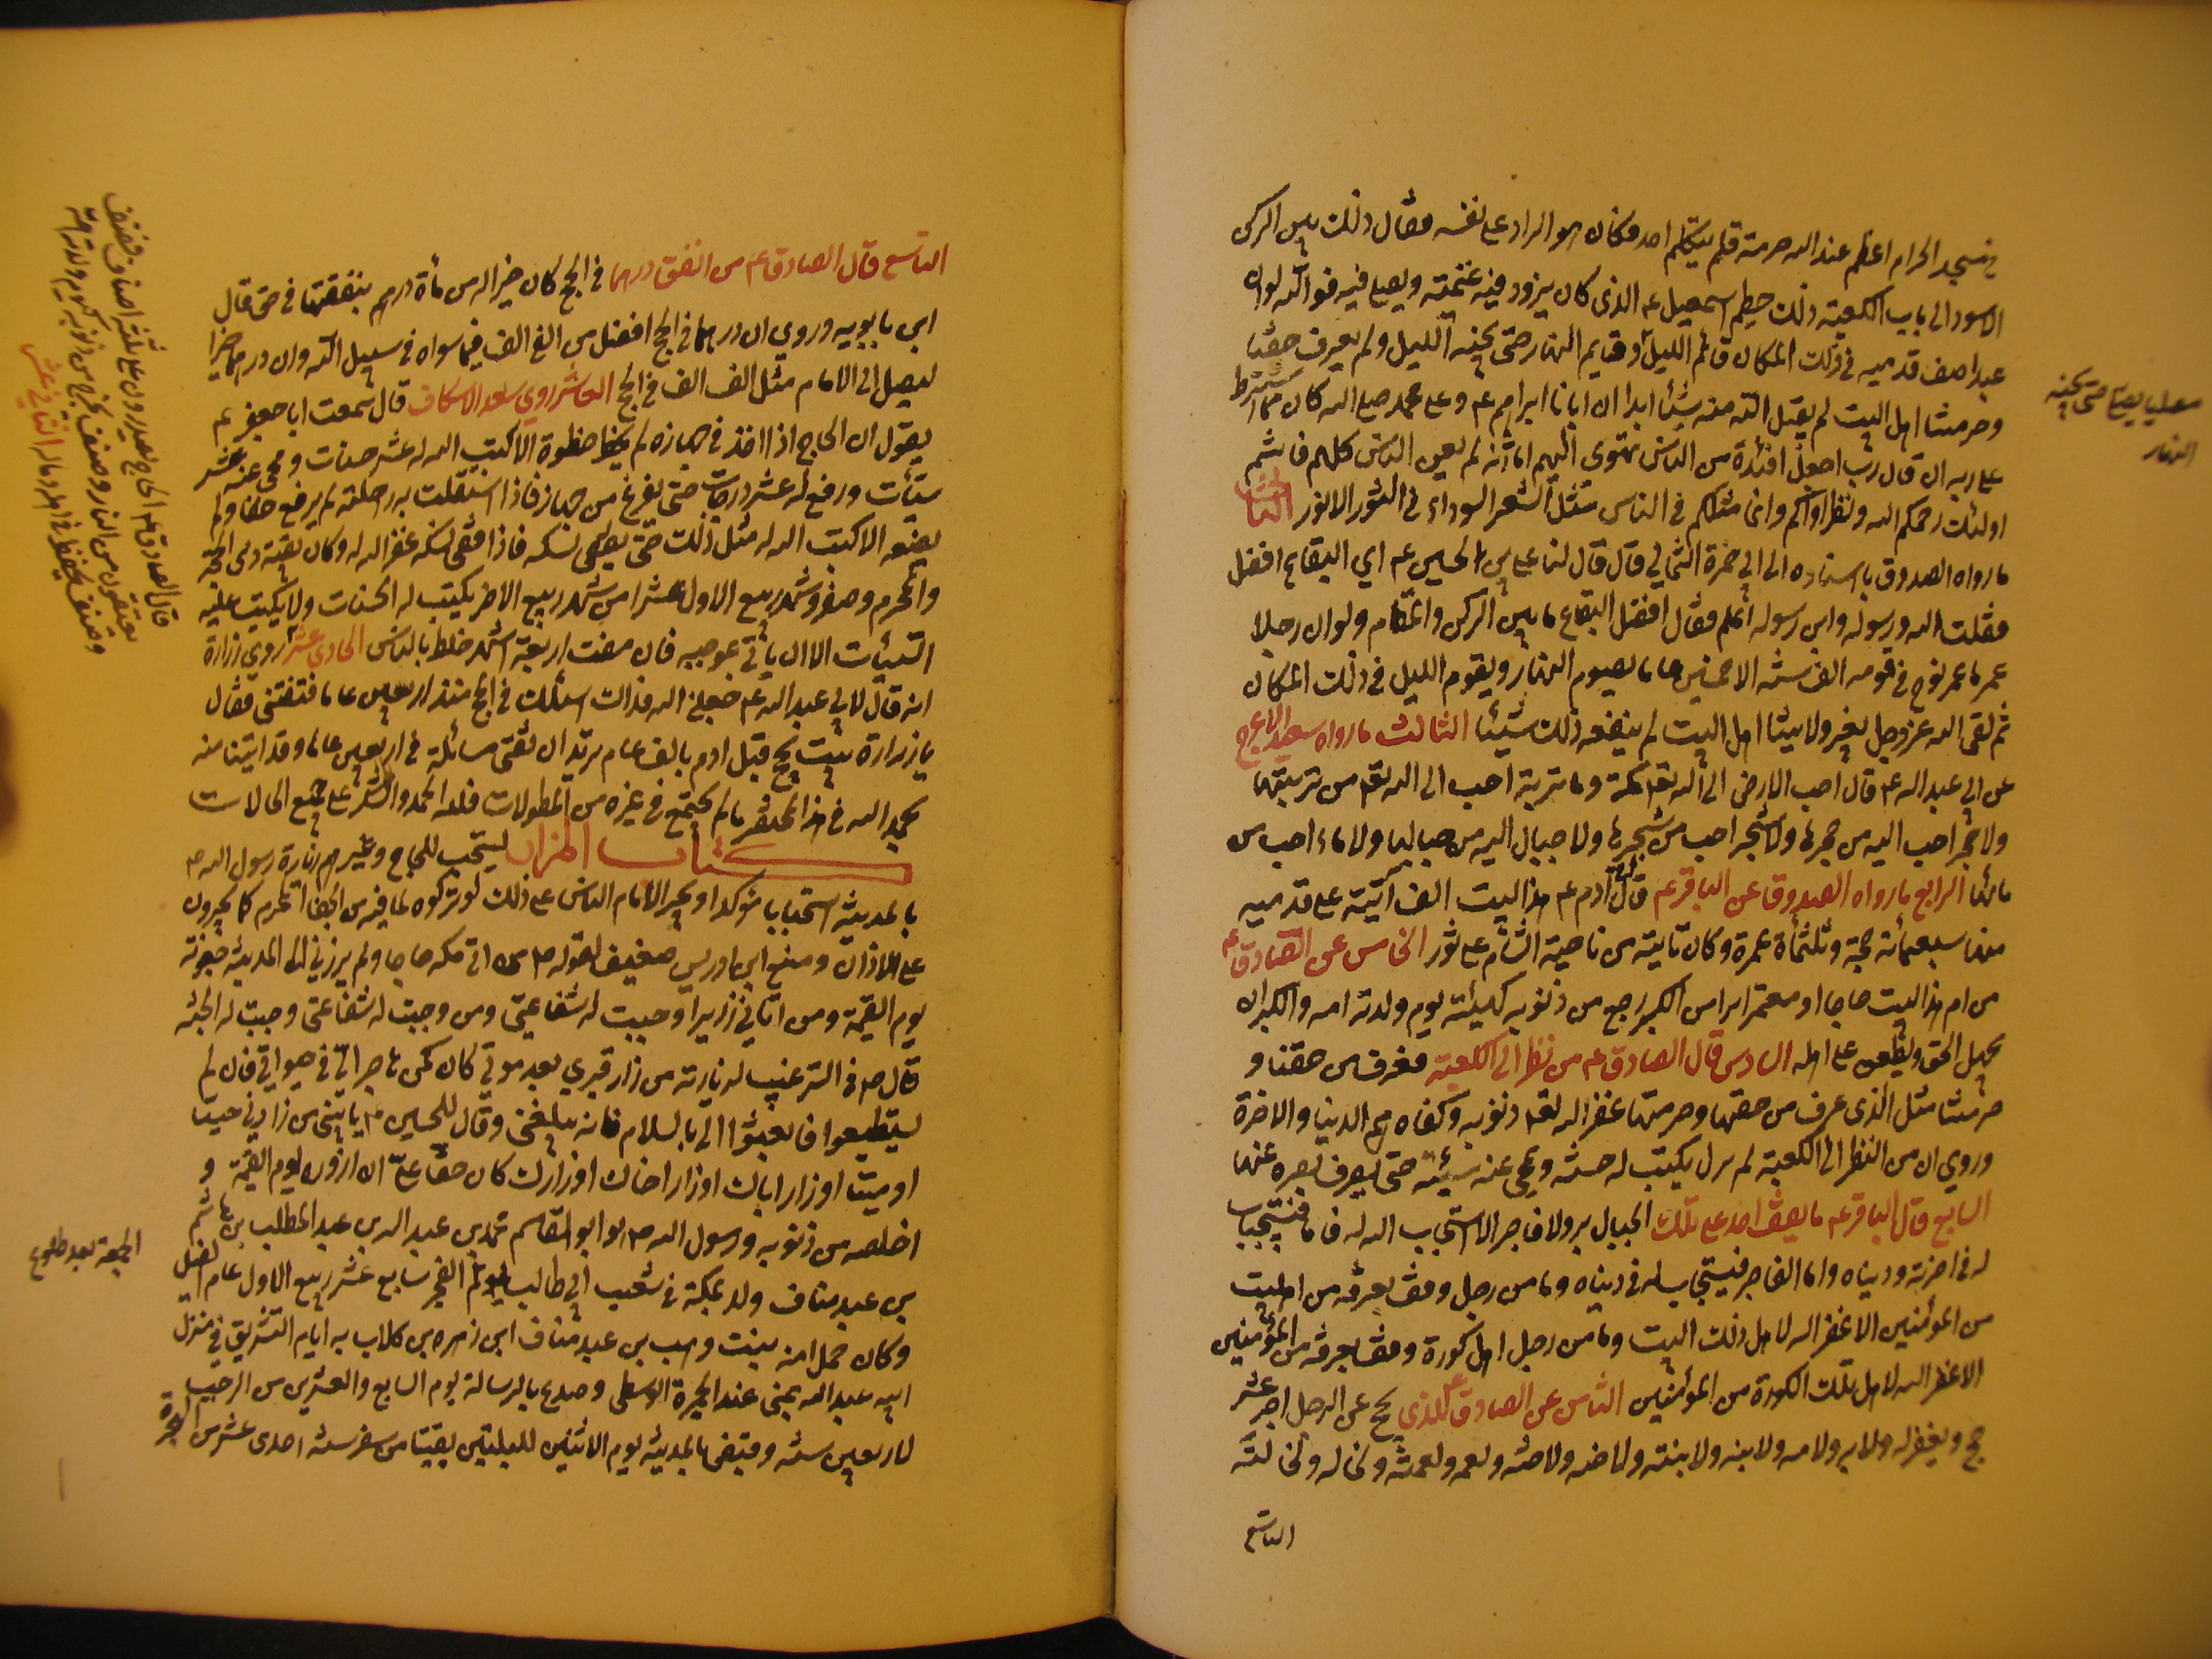 مسجد الحرام اعظم عند الله حرمة فلم يتكلم احد فكان هو الراد على نفسه فقال ذلك بين الركن
الاسود الى باب الكعبة ذلك حطيم اسمعيل ع الذى كان يزود فيه غنيمته ويصلى فيه فوالله لو ان
عبدا صف قدميه فى ذلك المكان قائم الليل وقايم النهار حتى يجنه الليل ولم يعرف حقنا
وحرمتنا اهل البيت لم يقبل الله منه شيئا ابدا ان ابانا ابراهيم ع وعلى محمد صلى الله كان مما اشترط
على ربه ان قال رب اجعل افئدة من الناس تهوى اليهم اما انه لم يعن الناس كلهم فانتم
اولئك رحمكم الله ونظراؤكم وانما مثلكم فى الناس مثل الشعر السوداء فى الثور الانور الثانى
ما رواه الصدوق باسناده الى ابى حمزة الثمالى قال قال لنا على بن الحسين ع اى البقاع افضل
فقلت الله ورسوله وابن رسوله اعلم فقال افضل البقاع ما بين الركن والمقام ولو ان رجلا
عمر ما عمر نوح فى قومه الف سنة الا خمسين عاما يصوم النهار ويقوم الليل فى ذلك المكان
ثم لقى الله عز وجل بغير ولايتنا اهل البيت لم ينفعه ذلك شيئا الثالث ما رواه سعيد الاعرج
عن ابى عبد الله ع قال احب الارض الى الله تعالى مكة وما تربة احب الى الله تعالى من تربتها
ولا حجر احب اليه من حجرها ولا شجر احب من شجرها ولا جبال اليه من جبالها ولا ماء احب من
مائها الرابع ما رواه الصدوق عن الباقر ع قال اتى آدم ع هذا البيت الف آتية على قدميه
منها سبعمائة حجة وثلثمأة عمرة وكان تأتيه من ناحية الشام على ثور الخامس عن الصادق ع
من ام هذا البيت حاجا او معتمرا مبرا من الكبر رجع من ذنوبه كهيئة يوم ولدته امه والكبر ان
يجهل الحق ويطعن على اهله السادس قال الصادق ع من نظر الى الكعبة فعرف من حقنا و
حرمتنا مثل الذى عرف من حقها وحرمتها غفر الله له ذنوبه وكفاه هم الدنيا والاخرة
وروى ان من النظر الى الكعبة لم يزل يكتب له حسنة ويمحى عنه سيئة حتى يصرف بصره عنها
السابع قال الباقر ع ما يقف احد على تلك الجبال بر ولا فاجر الا استجاب الله له فاما فيستجاب
له فى اخرته ودنياه واما الفاجر فيستجاب له فى دنياه وما من رجل وقف بعرفة من اهل بيت
من المؤمنين الا غفر الله لاهل ذلك البيت وما من رجل اهل كورة وقف بعرفة من المؤمنين
الا غفر الله لاهل تلك الكورة من المؤمنين الثامن عن الصادق ع للذى يحج عن الرجل اجر عشر
حج ويغفر له ولابيه ولامه ولابنه ولابنته ولاخيه ولاخته ولعمه ولعمته ولخاله ولخالته
التاسع
مصليا يصلى حتى يجنه
النهار
التاسع قال الصادق ع من انفق درهما فى الحج كان خيرا له من مأة درهم ينفقها فى حق قال
ابن بابويه وروى ان درهما فى الحج افضل من الف الف فيما سواه فى سبيل الله وان درهما
ليصل الى الامام مثل الف الف فى الحج العاشر روى سعد الاسكاف قال سمعت ابا جعفر ع
يقول ان الحاج اذا اخذ فى جهازه لم يخط خطوة الا كتب الله له عشر حسنات ومحى عنه عشر
سيئات ورفع له عشر درجات حتى يفرغ من جهازه فاذا استقلت به راحلته لم يرفع خفا ولم
يضعه الا كتب الله له مثل ذلك حتى يقضى نسكه فاذا قضى نسكه غفر الله له وكان بقية ذى الحجة
والمحرم وصفر وشهر ربيع الاول وعشرا من شهر ربيع الاخر يكتب له الحسنات ولا يكتب عليه
السيئات الا ان يأتى بموجبه فان مضت اربعة اشهر خلط بالناس الحادى عشر روى زرارة
انه قال لابى عبد الله ع جعلنى الله فداك اسئلك فى الحج منذ اربعين عاما فتفتنى فقال
يا زرارة بيت يحج قبل ادم بالف عام تريد ان تفتى مسائله فى اربعين عاما وقد اتينا منه
بحمد الله فى هذا المختصر ما لم يجتمع فى غيره من المطولات فلله الحمد والشكر على جميع الحالات
كتاب المزار يستحب للحاج وغيرهم زيارة رسول الله ص
بالمدينة استحبابا مؤكدا ويجبر الامام الناس على ذلك لو تركوه لما فيه من الجفا المحرم كما يجبرون
على الاذان ومنع ابن ادريس ضعيف لقوله ص من اتى مكة حاجا ولم يزرنى الى المدينة جفوته
يوم القيمة ومن اتانى زايرا وجبت له شفاعتى ومن وجبت له شفاعتى وجبت له الجنة
قال ص فى الترغيب لزيارته من زار قبرى بعد موتى كان كمن هاجر الى فى حيواتى فان لم
يستطيعوا فابعثوا الى بالسلام فانه يبلغنى وقال للحسين ع يا بنى من زارنى حيا
او ميتا او زار اباك او زار اخاك او زارك كان حقا على ان ازوره يوم القيمة و
اخلصه من ذنوبه ورسول الله ص هو ابو القاسم محمد بن عبد الله بن عبد المطلب بن هاشم
بن عبد مناف ولد بمكة فى شعب ابى طالب يوم الفجر سابع عشر ربيع الاول عام الفيل
وكان حمل امه بنت وهب بن عبد مناف ابن زهره بن كلاب به ايام التشريق فى منزل
ابيه عبد الله بمنى عند الجمرة الوسطى وصدع بالرسالة يوم السابع والعشرين من الرجب
لاربعين سنة وقبض بالمدينة يوم الاثنين لليلتين بقيتا من صفر سنة احدى عشر من الهجرة
قال الصادق ع الحاج يصدرون على ثلثة اصناف فصنف
يعتقون من النار وصنف يخرج من ذنوبه كيوم ولدته امه
وصنف يحفظ فى اهله وماله الثانى عشر
الجمعة بعد طلوع